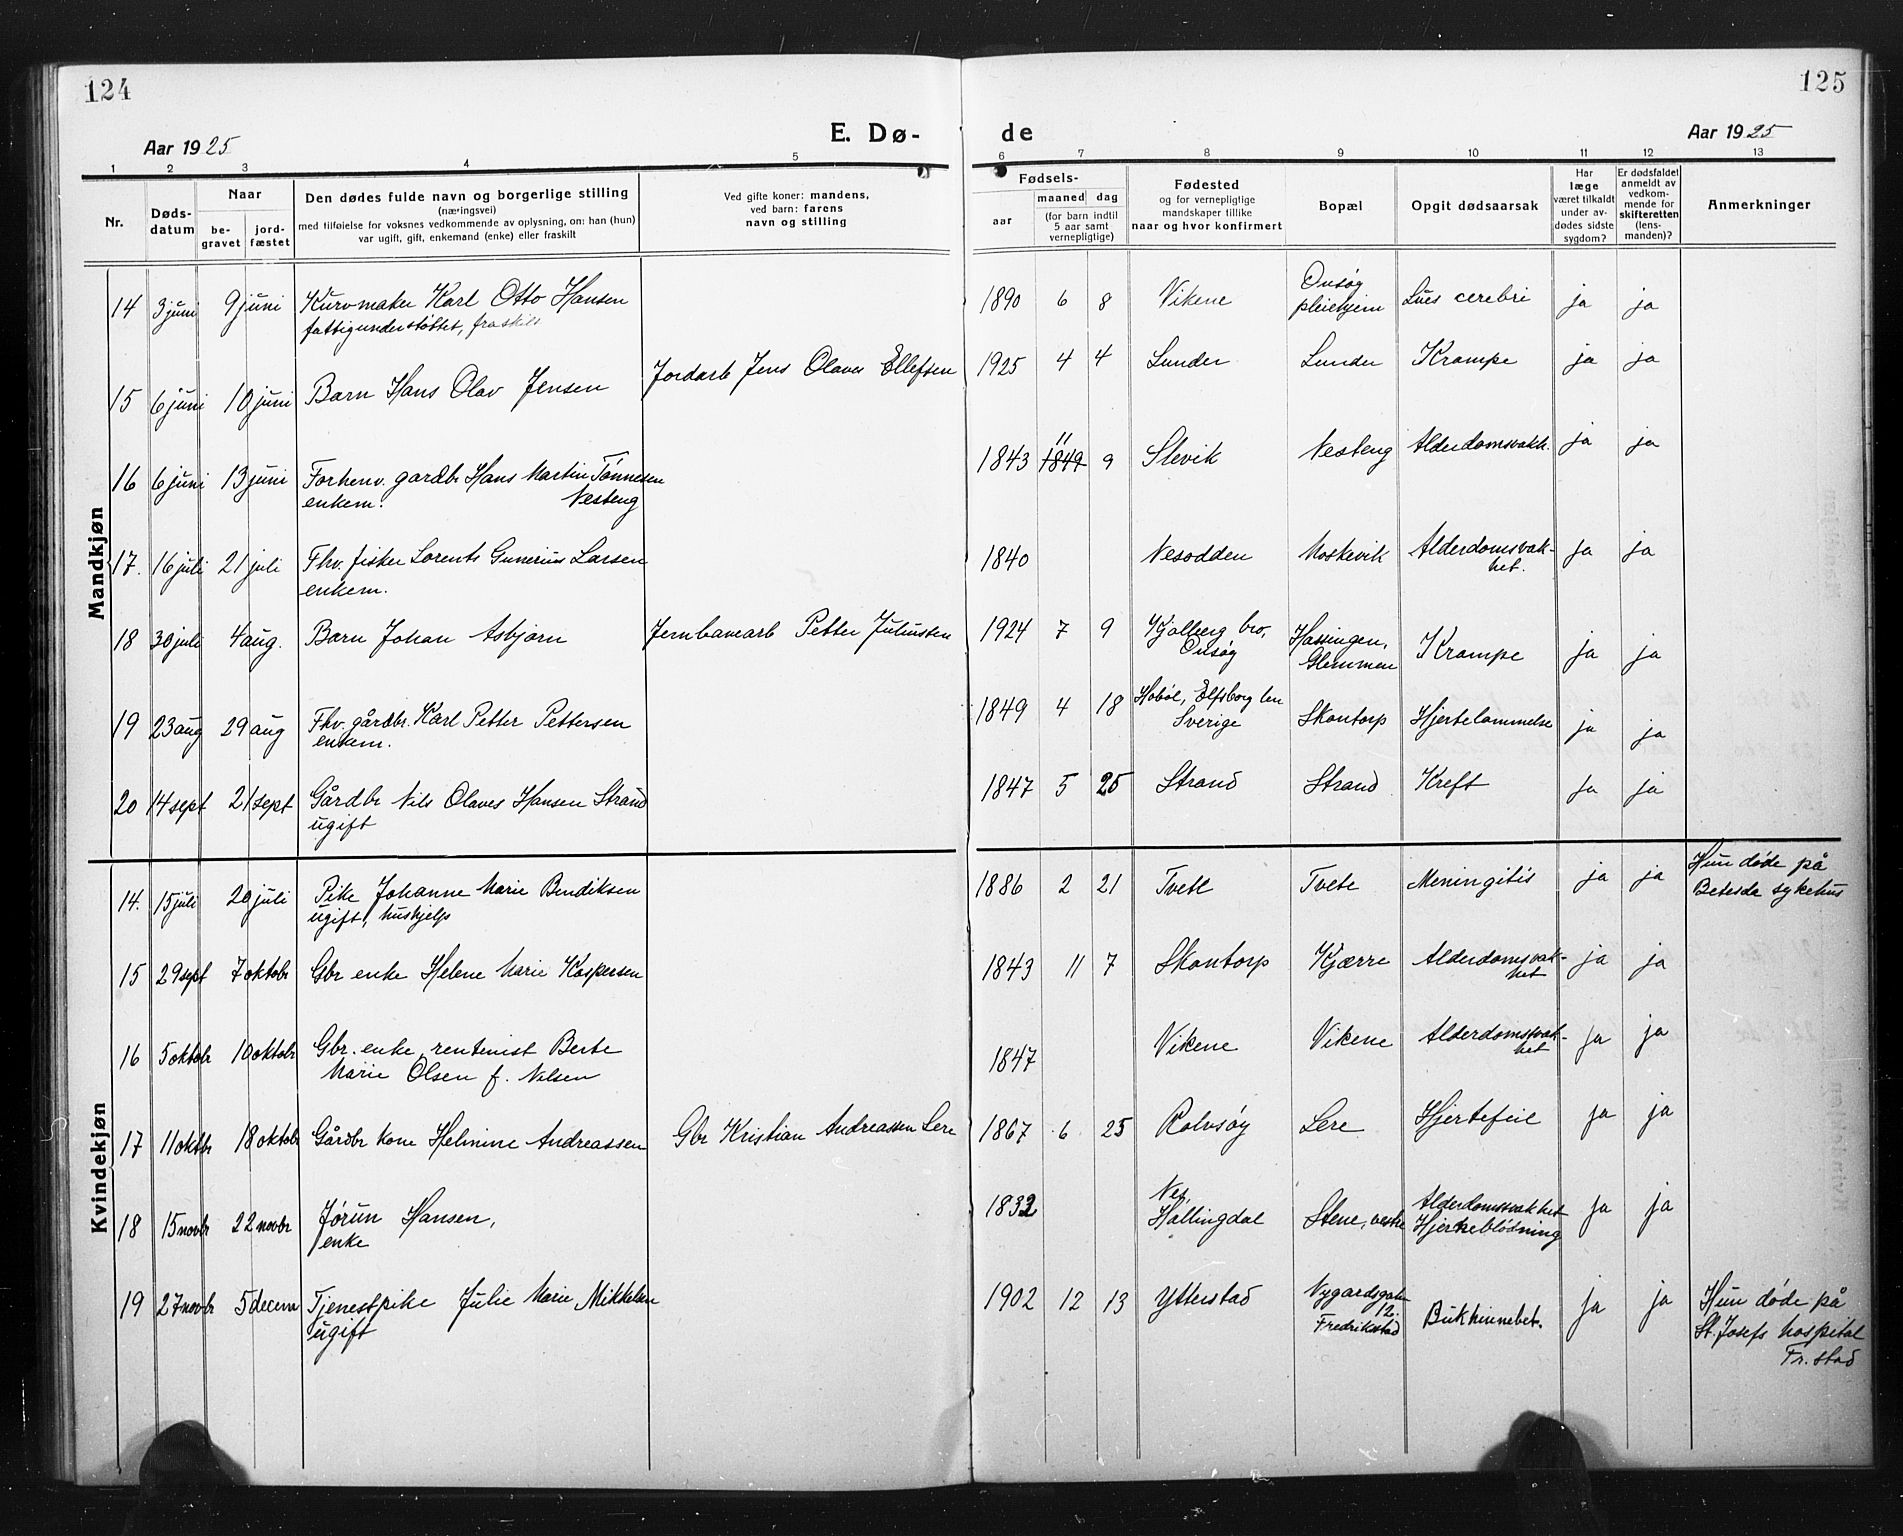 124
125
E. Dø-
de
Aar 1925
Aar 1925
1 2 3 4 5 6 7 8 9 10 11 12 13
Nr.
Døds-
datum
Naar
be-
gravet
jord-
fæstet
Den dødes fulde navn og borgerlige stilling
(næringsvei)
med tilføielse for voksnes vedkommende av oplysning, on: han (hun)
var ugift, gift, enkemand (enke) eller fraskilt
Ved gifte koner: mandens,
ved barn: farens
navn og stilling
Fødsels-
aar
maaned dag
(for barn indtil
5 aar samt
vernepligtige)
Fødested
og for vernepligtige
mandskaper tillike
naar og hvor konfirmert
Bopæl
Opgit dødsaarsak
Har
læge
været tilkaldt
under av-
dødes sidste
sygdom?
Er dødsfaldet
anmeldt av
vedkom-
mende for
skifteretten
(lens-
manden)?
Anmerkninger
Mandkjøn
14 3 juni 9 juni Kurvmaker Karl Otto Hansen
fattigunderstøttet, fraskilt
1890 6 8 Vikene Onsøy
pleiehjem Lues cerebri ja ja
15 6 juni 10 juni Barn Hans Olav Jensen Jordarb Jens Olaves Ellefsen 1925 4 4 Lunder Lunder Krampe ja ja
16 6 juni 13 juni Forhenv. gardbr Hans Martin Tønnesen
enkem. Nesteng
1843 11 1849 9 Slevik Nesteng Alderdomsvakh. ja ja
17. 16 juli 21 juli Fhv. fisker Lorents Gunerius Larsen
enkem.
1840 Nesodden Moskevik Alderdomsvak-
het. ja ja
18 30 juli 4 aug. Barn Johan Asbjørn Jernbanearb Petter Juliussen 1924 7 9 Kjølberg bro,
Onsøy Hassingen,
Glemmen Krampe ja ja
19 23 aug 29 aug Fhv. gårdbr. Karl Petter Pettersen
enkem.
1849 4 18 Habøl, Elfsborg len
Sverige Skontorp Hjertelammelse ja ja
20 14 sept 21 sept Gårdbr Nils Olaves Hansen Strand
ugift
1847 5 25 Strand Strand Kreft ja ja
Kvindekjøn
14. 15 juli 20 juli Pike Johanne Marie Bendiksen
ugift, hushjelp
1886 2 21 Tvete Tvete Meningitis ja ja Hun døde på
Betesda sykehus
15 29 sept 7 oktobr Gbr enke Helene Marie Kaspersen 1843 11 7 Skontorp Kjærre Alderdomsvak-
het ja ja
16 5 oktobr 10 oktobr Gbr. enke, rentenist Berte
Marie Olsen f. Nilsen
1847 Vikene Vikene Alderdomsvak-
het ja ja
17 11 oktbr 18 oktobr Gårdbr kone Helmine Andreassen Gbr Kristian Andreassen Lere 1867 6 25 Rolvsøy Lere Hjertefeil ja ja
18 15 novbr 22 novbr Jørun Hansen,
enke
1832 Nes,
Hallingdal Stene, vestre Alderdomsvakhet
Hjerneblødning ja ja
19 27 novbr 5 decem Tjenestpike Julie Marie Mikkelsen
ugift
1902 12 13 Ytterstad Nygardsgaten
12.
Fredrikstad Bukhinnebet. ja ja Hun døde på
St. Josefs hospital
Fr.stad